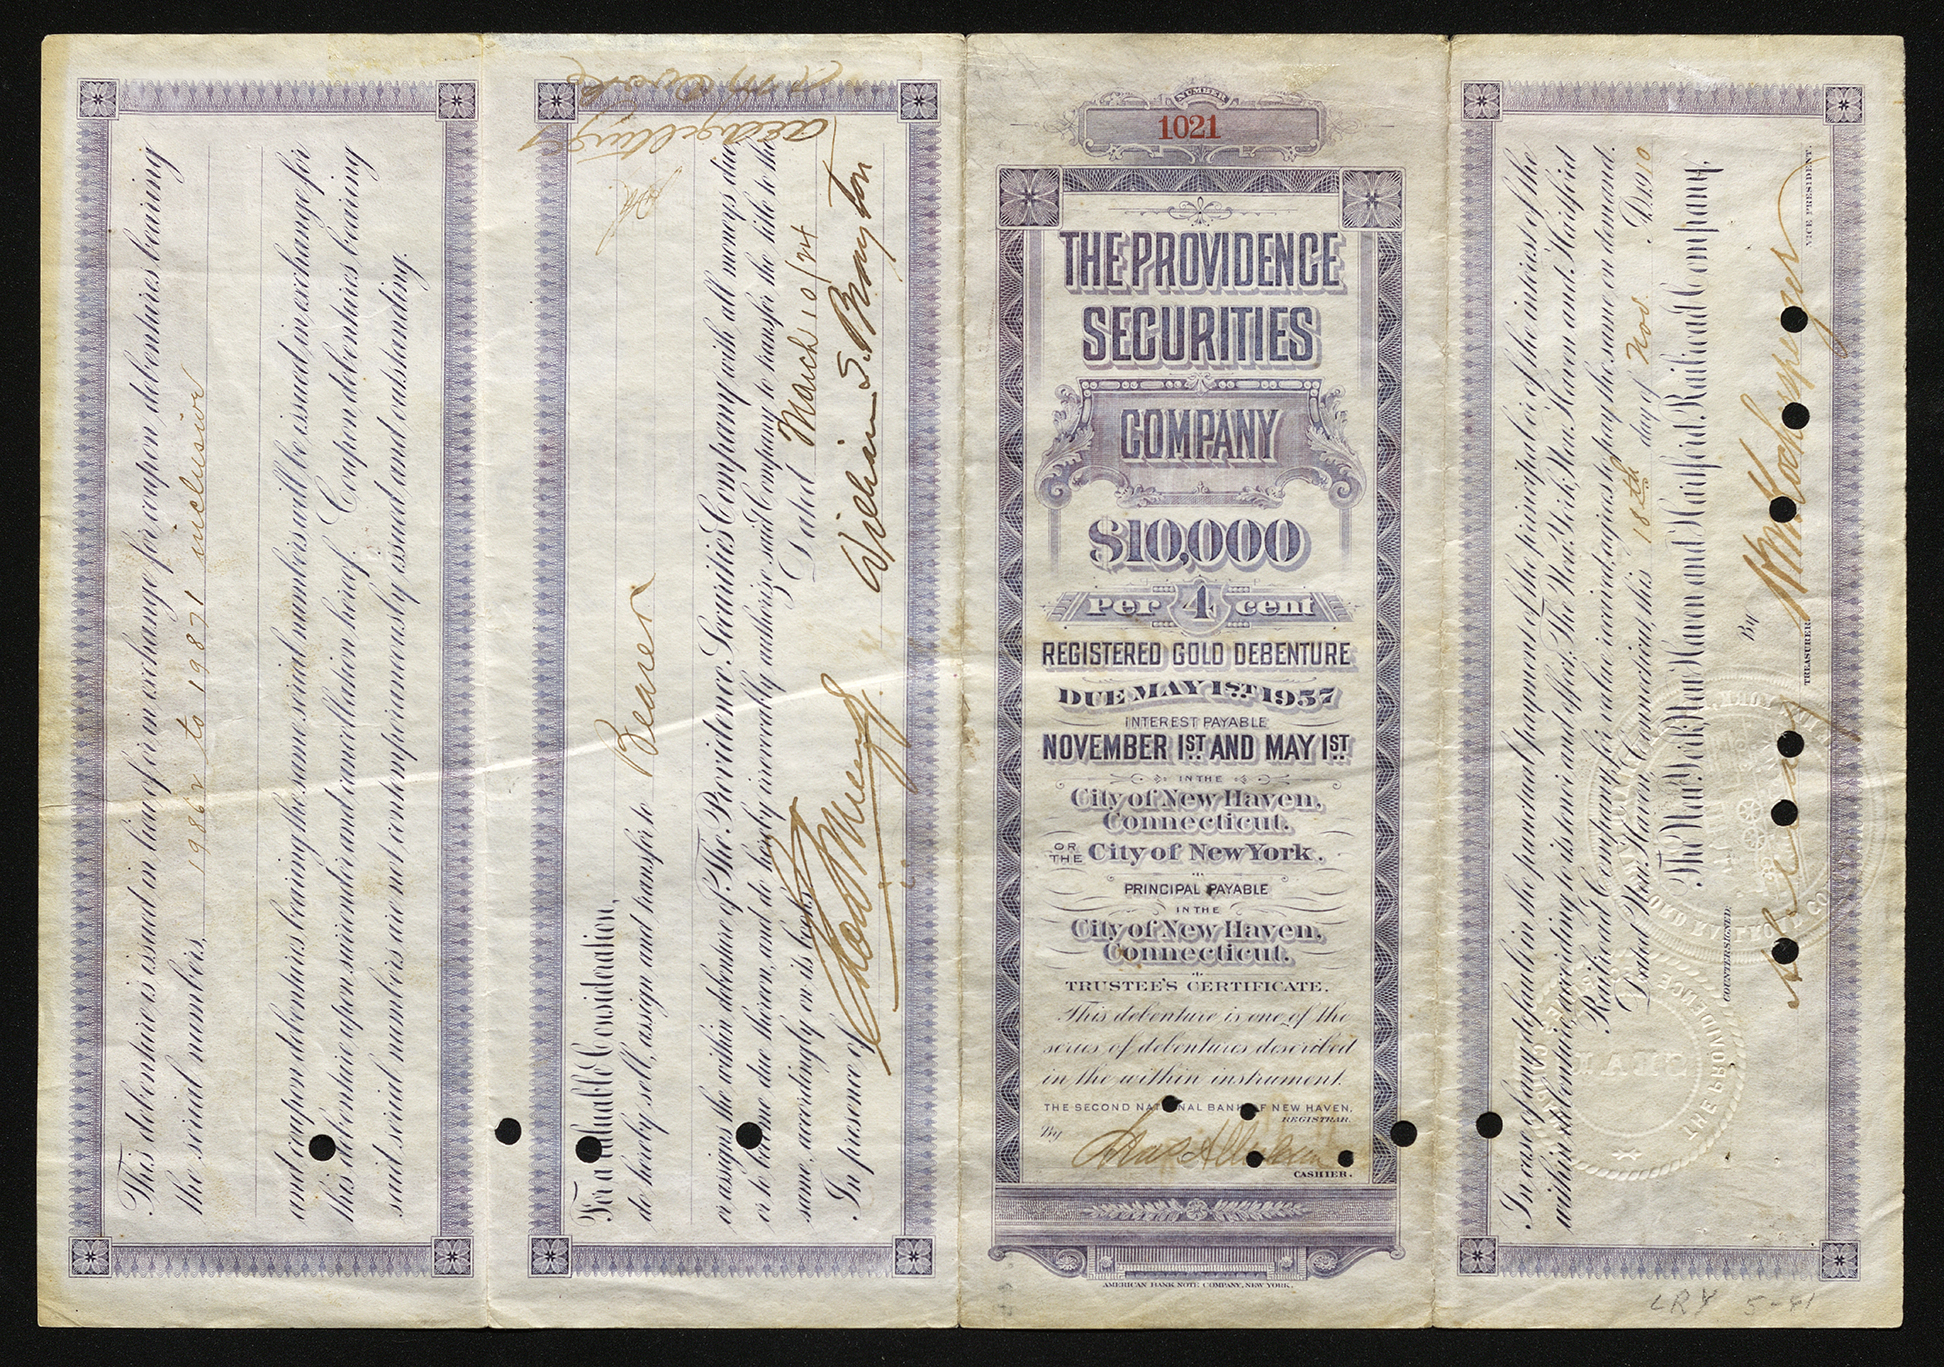 This debenture is issued in lieu of or in exchange for coupon debentures bearing
the serial numbers,
19862 to 19871 inclusive
and coupon debentures bearing the same serial numbers will be issued in exchange for
this debenture upon surrender and cancellation hereof. Coupon debentures bearing
said serial numbers are not contemporaneously issued and outstanding.
For a Valuable Consideration,
do hereby sell, assign and transfer to Bearer
or assigns the within debenture of The Providence Securities Company with all moneys due
or to become due thereon, and do hereby irrevocably authorize said Company to transfer the title to the
same, accordingly on its books.
Dated March 10/24
In presence of
William S. Brayton
NUMBER
1021
THE PROVIDENCE
SECURITIES
COMPANY
$10,000
Per 4 cent
REGISTERED GOLD DEBENTURE
DUE MAY 1ST 1957
INTEREST PAYABLE
NOVEMBER 1ST AND MAY 1ST
IN THE
City of New Haven,
Connecticut.
OR THE City of New York.
PRINCIPAL PAYABLE
IN THE
City of New Haven,
Connecticut.
TRUSTEE'S CERTIFICATE.
This debenture is one of the
series of debentures described
in the within instrument.
THE SECOND NATIONAL BANK OF NEW HAVEN,
REGISTRAR.
By
CASHIER.
AMERICAN BANK NOTE COMPANY, NEW YORK.
In case of any default in the punctual payment of the principal or of the interest of the
within debenture, according to its tenor and effect, The New York, New Haven and Hartford
Railroad Company, for value received, agrees to pay the same on demand.
Dated New Haven, Connecticut, this 18th day of Nov. A.D. 1910
The New York, New Haven and Hartford Railroad Company,
By
VICE PRESIDENT.
COUNTERSIGNED.
TREASURER.
THE PROVIDENCE
SEAL
5-41